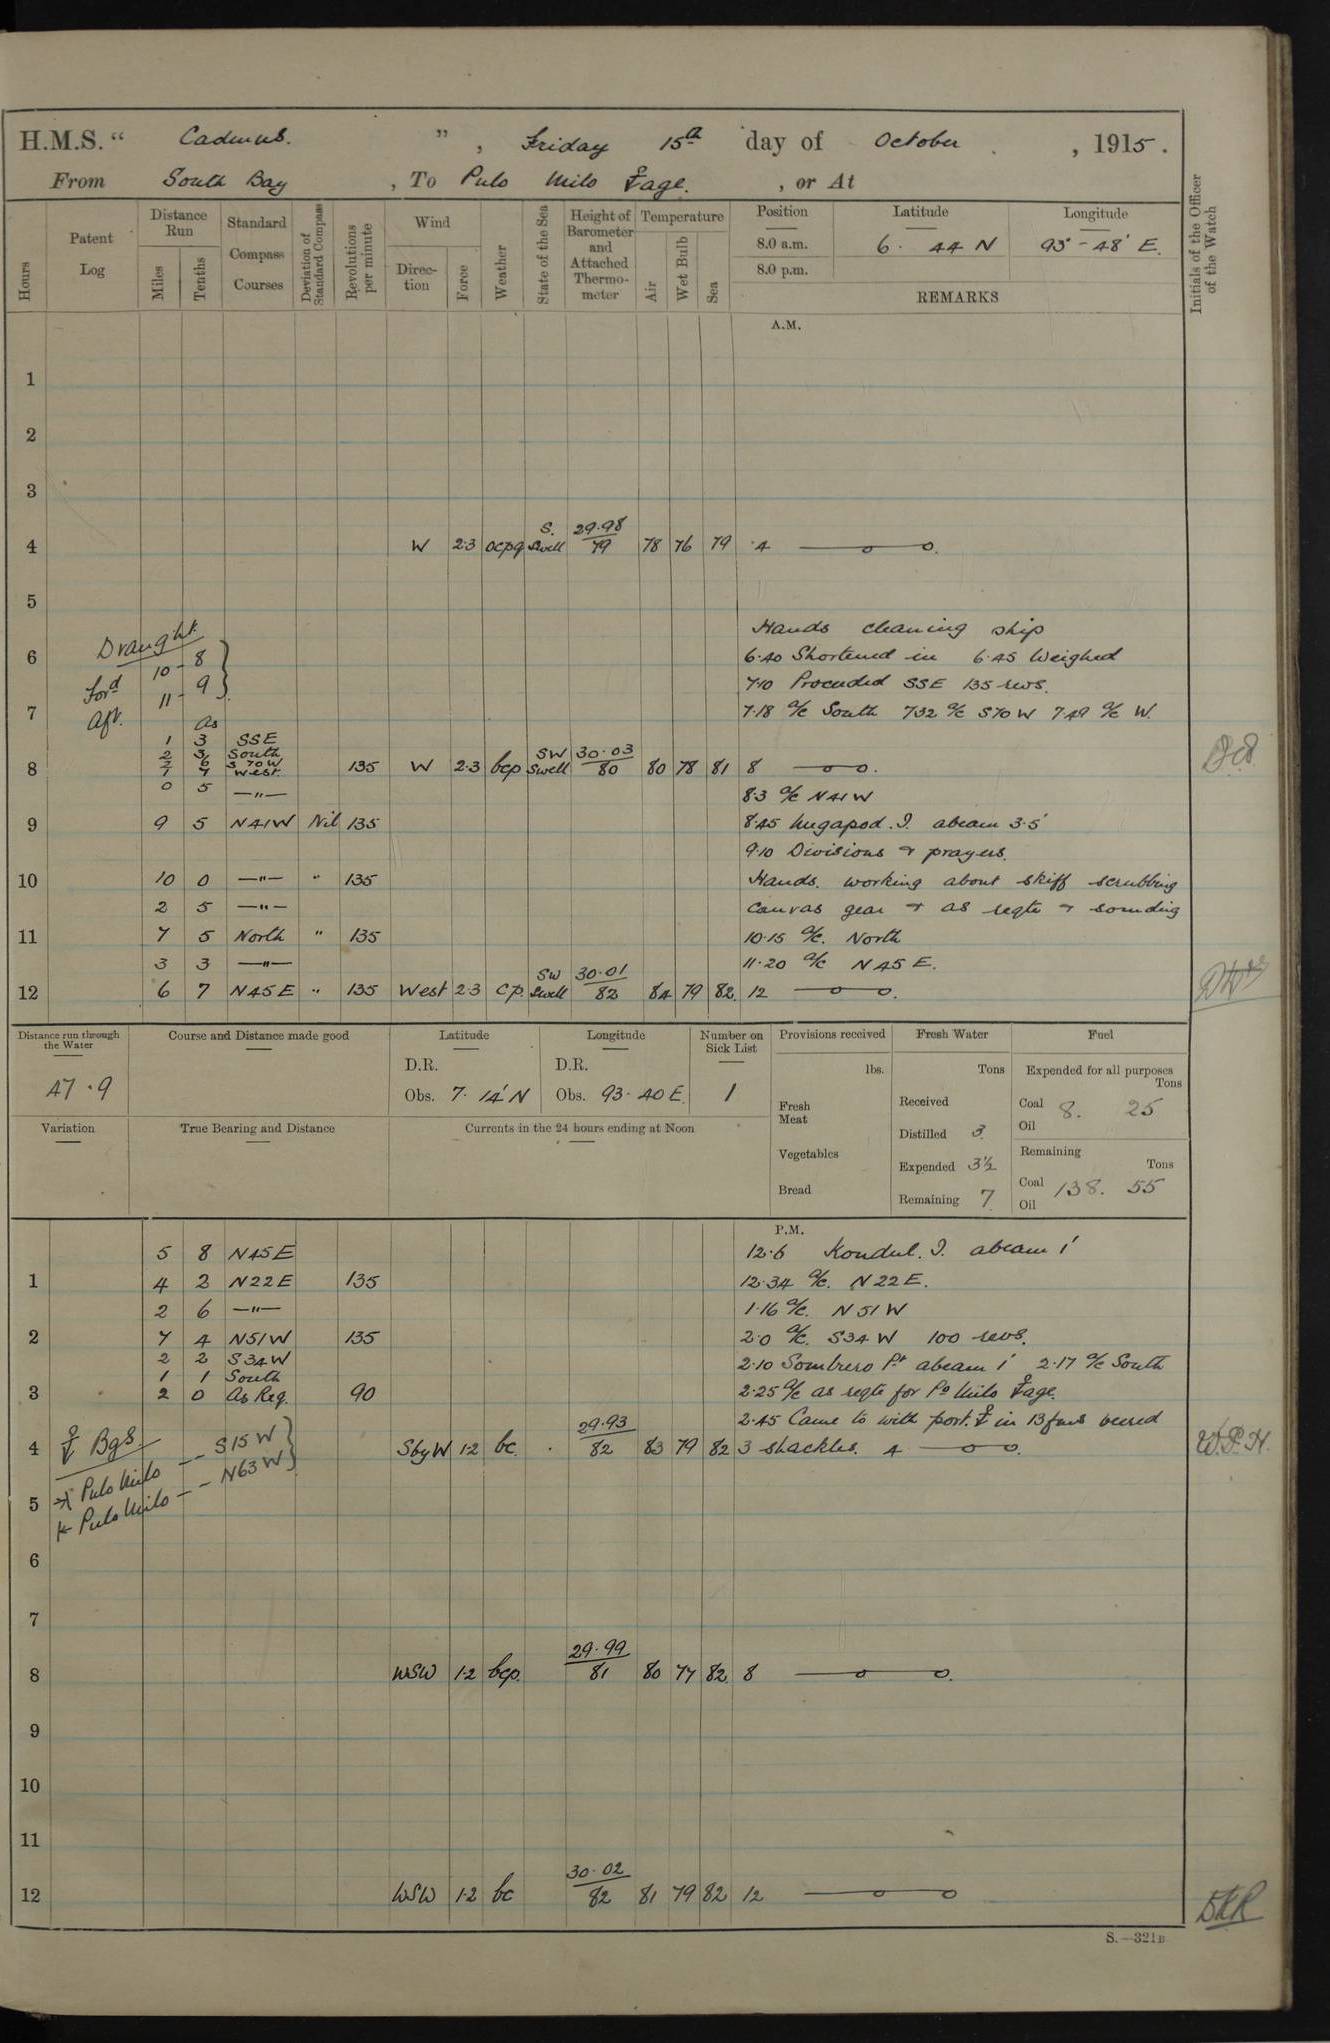 H.M.S. “ Cadmus. ” , Friday 15th day of October , 1915.
From South Bay , To Pulo Milo ⚓age. , or At
Hours
Patent Log
Distance Run
Miles
Tenths
Standard Compass Courses
Deviation of Standard Compass
Revolutions per minute
Wind
Direction
Force
Weather
State of the Sea
Height of Barometer and Attached Thermometer
Temperature
Air
Wet Bulb
Sea
Position
Latitude
Longitude
8.0 a.m. 6. 44 N 93° - 48' E.
8.0 p.m.
REMARKS
Initials of the Officer of the Watch
A.M.
1
2
3
4 W 2·3 ocpq S. Swell 29·98 79 78 76 79 4
5
Hands cleaning ship
Draught.
6 Ford 10 - 8 6·40 Shortened in 6·45 Weighed
Aft. 11 - 9 7·10 Proceeded SSE 135 revs.
7 7·18 a/c South 7·32 a/c S70W 7·49 a/c W.
1 3 SSE
2 3 South
2 6 S 70 W
8 1 4 West 135 W 2·3 bcp SW Swell 30·03 80 80 78 81 8
0 5 —"— 8·3 a/c N41W
9 9 5 N41W Nil 135 8·45 Megapod. I. abeam 3·5'
9·10 Divisions & prayers.
10 10 0 —"— " 135 Hands. working about skiff scrubbing
2 5 —"— canvas gear & as reqte & sounding
11 7 5 North " 135 10·15 a/c. North
3 3 —"— 11·20 a/c N45E.
12 6 7 N45E " 135 West 2·3 cp. SW Swell 30·01 82 84 79 82 12
Distance run through the Water
47·9
Course and Distance made good
Latitude
D.R.
Obs. 7· 14' N
Longitude
D.R.
Obs. 93· 40 E.
Number on Sick List
1
Provisions received
lbs.
Fresh Meat
Vegetables
Bread
Fresh Water
Tons
Received
Distilled 3
Expended 3½
Remaining 7
Fuel
Expended for all purposes
Tons
Coal 8. 25
Oil
Remaining
Tons
Coal 138. 55
Oil
Variation
True Bearing and Distance
Currents in the 24 hours ending at Noon
P.M.
5 8 N45E 12·6 Kondul. I. abeam 1'
1 4 2 N22E 135 12·34 a/c. N22E.
2 6 —"— 1·16 a/c. N51W
2 7 4 N51W 135 2·0 a/c. S34W 100 revs.
2 2 S34W 2·10 Sombrero Pt abeam 1' 2·17 a/c South
1 1 South
3 2 0 As Req. 90 2·25 a/c as reqte for Po Milo ⚓age.
2·45 Came to with port. ⚓ in 13 fms veered
4 ⚓ Bgs SbyW 1·2 bc . 29·93 82 83 79 82 3 shackles. 4 W.P.H.
→| Pulo Milo — — S15W
5 |← Pulo Milo — — N63W
6
7
8 WSW 1·2 bcp. 29·99 81 80 77 82 8
9
10
11
12 WSW 1·2 bc 30·02 82 81 79 82 12
S.—321B